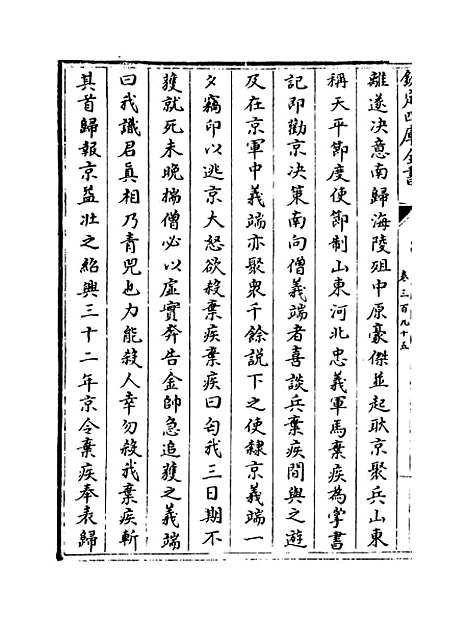 欽定四庫全書
卷三百九十五
離遂决意南歸海陵殂中原豪傑並起耿京聚兵山東
稱天平節度使節制山東河北忠義軍馬棄疾為掌書
記即勸京决策南向僧義端者喜談兵棄疾間與之遊
及在京軍中義端亦聚衆千餘説下之使𨽻京義端一
夕竊印以逃京大怒欲殺棄疾棄疾曰匄我三日期不
獲就死未晩揣僧必以虛實奔告金帥急追獲之義端
曰我識君真相乃青兕也力能殺人幸勿殺我棄疾斬
其首歸報京益壯之紹興三十二年京令棄疾奉表歸